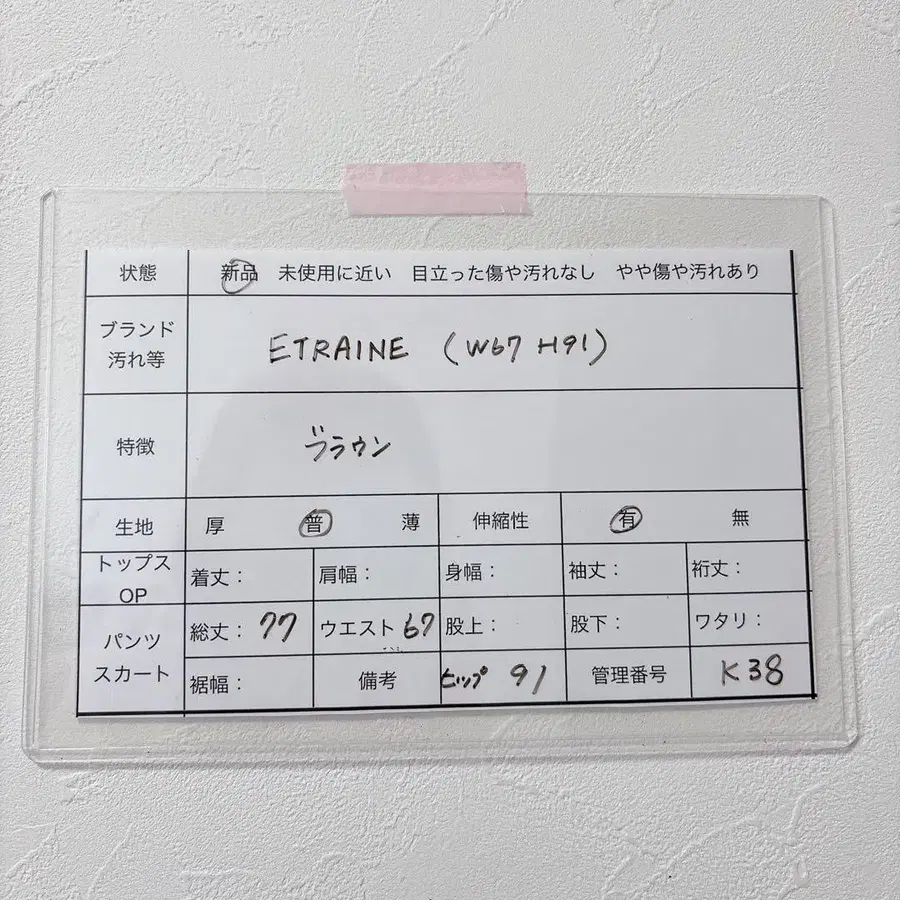 状態 新品 未使用に近い 目立った傷や汚れなし やや傷や汚れあり
ブランド
汚れ等
ETRAINE (W67 H91)
特徴 ブラウン
生地 厚 普 薄 伸縮性 有 無
トップス
OP
着丈: 肩幅: 身幅: 袖丈: 裄丈:
パンツ
スカート
総丈: 77 ウエスト 67 股上: 股下: ワタリ:
裾幅: 備考 ヒップ 91 管理番号 K38